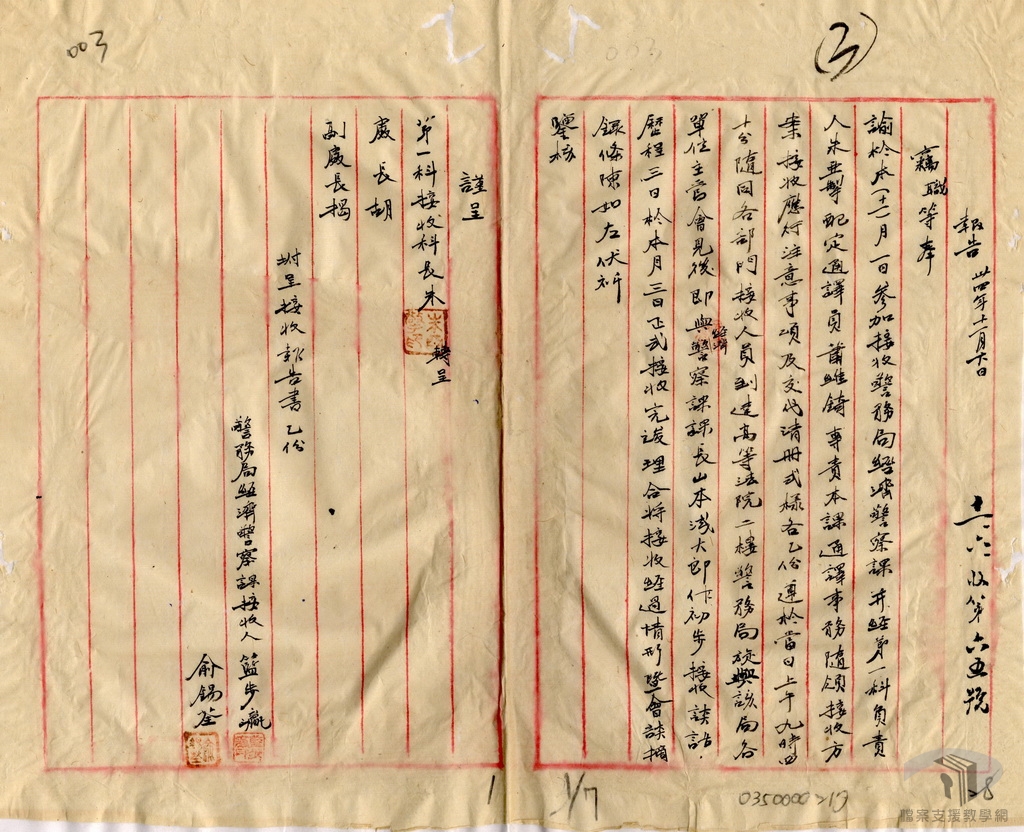 003
(3)
十一.六.收第六五號
報告 卅四年十一月六日
竊職等奉
諭於本(十一)月一日參加接收警務局經濟警察課并經第一科負責
人朱亞擘配定通譯員蕭維錡專責本課通譯事務隨領接收方
案接收應行注意事項及交代清冊式樣各乙份連於當日上午九時四
十分隨同各部門接收人員到達高等法院二樓警務局旋與該局各
單位主官會見後即與經濟警察課課長山本淺太郎作初步接收談話
歷程三日於本月三日正式接收完竣理合將接收經過情形暨會談摘
錄條陳如左伏祈
鑒核
謹呈
第一科接收科長朱 轉呈
處長胡
副處長揭
附呈接收報告書乙份
警務局經濟警察課接收人 藍步瀛
俞錫荃
1
1/7
0350000213
28
檔案支援教學網